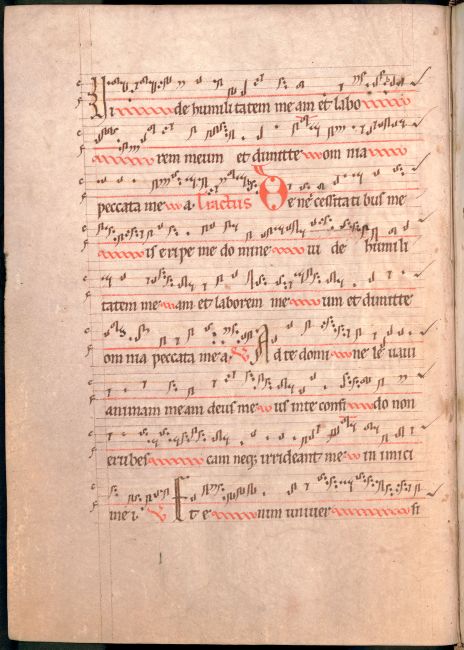 Vi de humili tatem me am et labo
rem meum et dimitte om nia
peccata me a. Tractus De ne cessita ti bus me
is eripe me do mine vi de humili
tatem me am et laborem me um et dimitte
om nia peccata me a. V Ad te domi ne le vavi
animam meam deus me us in te confi do non
erubes cam neq irrideant me in imici
me i. V Et e nim univer si